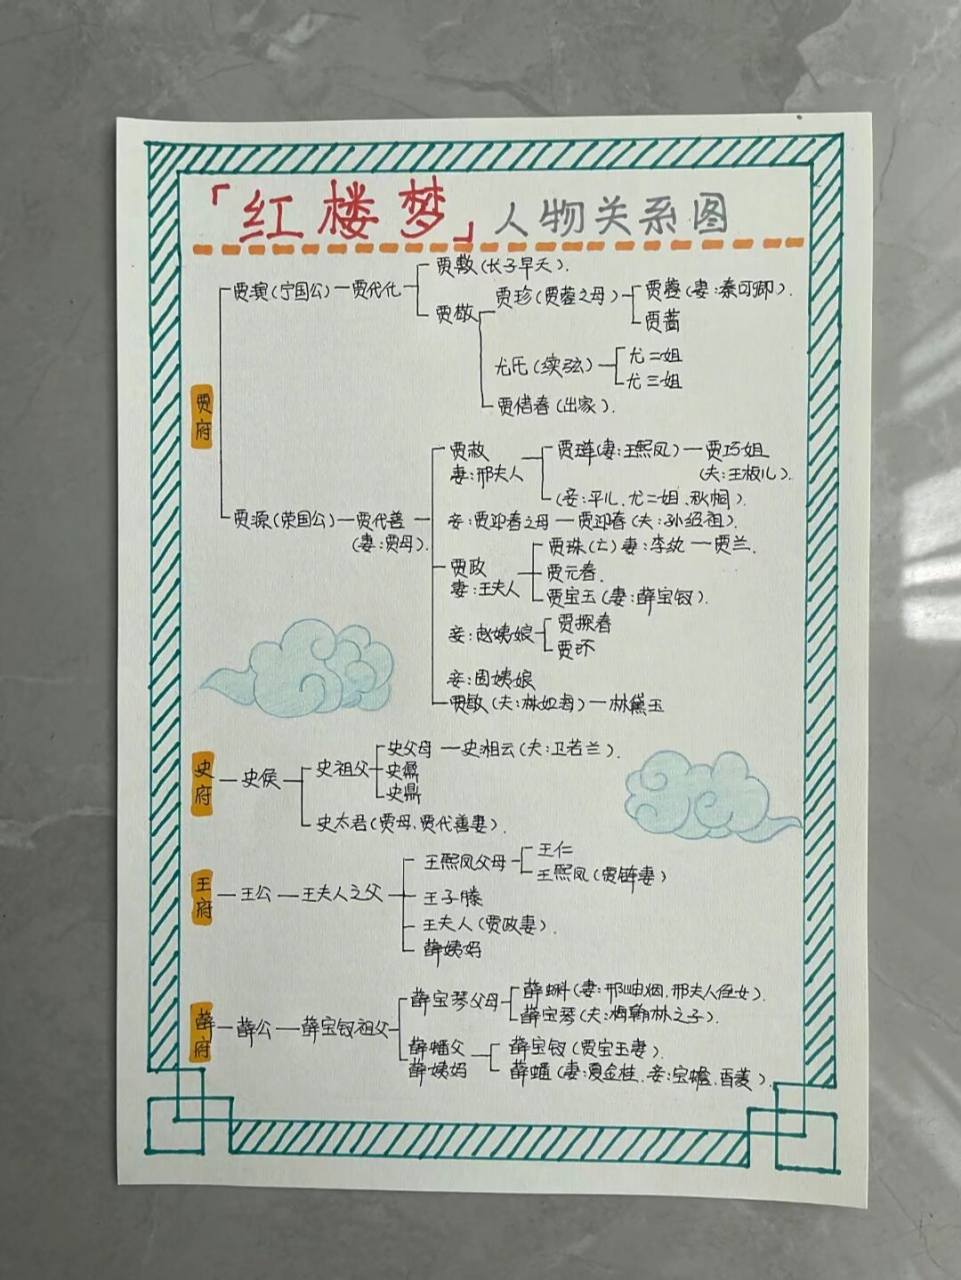 「红楼梦」人物关系图
贾府
贾演(宁国公)—贾代化
贾敷(长子早夭).
贾敬
贾珍(贾蓉之母)
贾蓉(妻:秦可卿).
贾蔷
尤氏(续弦)
尤二姐
尤三姐
贾惜春(出家).
贾源(荣国公)—贾代善
(妻:贾母).
贾赦
妻:邢夫人
贾琏(妻:王熙凤)—贾巧姐
(夫:王板儿).
(妾:平儿、尤二姐、秋桐).
妾:贾迎春之母—贾迎春(夫:孙绍祖).
贾政
妻:王夫人
贾珠(亡)妻:李纨—贾兰.
贾元春.
贾宝玉(妻:薛宝钗).
妾:赵姨娘
贾探春
贾环
妾:周姨娘
贾敏(夫:林如海)—林黛玉
史府—史侯
史祖父
史父母—史湘云(夫:卫若兰).
史鼐
史鼎
史太君(贾母、贾代善妻).
王府—王公—王夫人之父
王熙凤父母
王仁
王熙凤(贾琏妻)
王子腾
王夫人(贾政妻).
薛姨妈
薛府—薛公—薛宝钗祖父
薛宝琴父母
薛蝌(妻:邢岫烟、邢夫人侄女).
薛宝琴(夫:梅翰林之子).
薛蟠父
薛姨妈
薛宝钗(贾宝玉妻).
薛蟠(妻:夏金桂、妾:宝蟾、香菱).